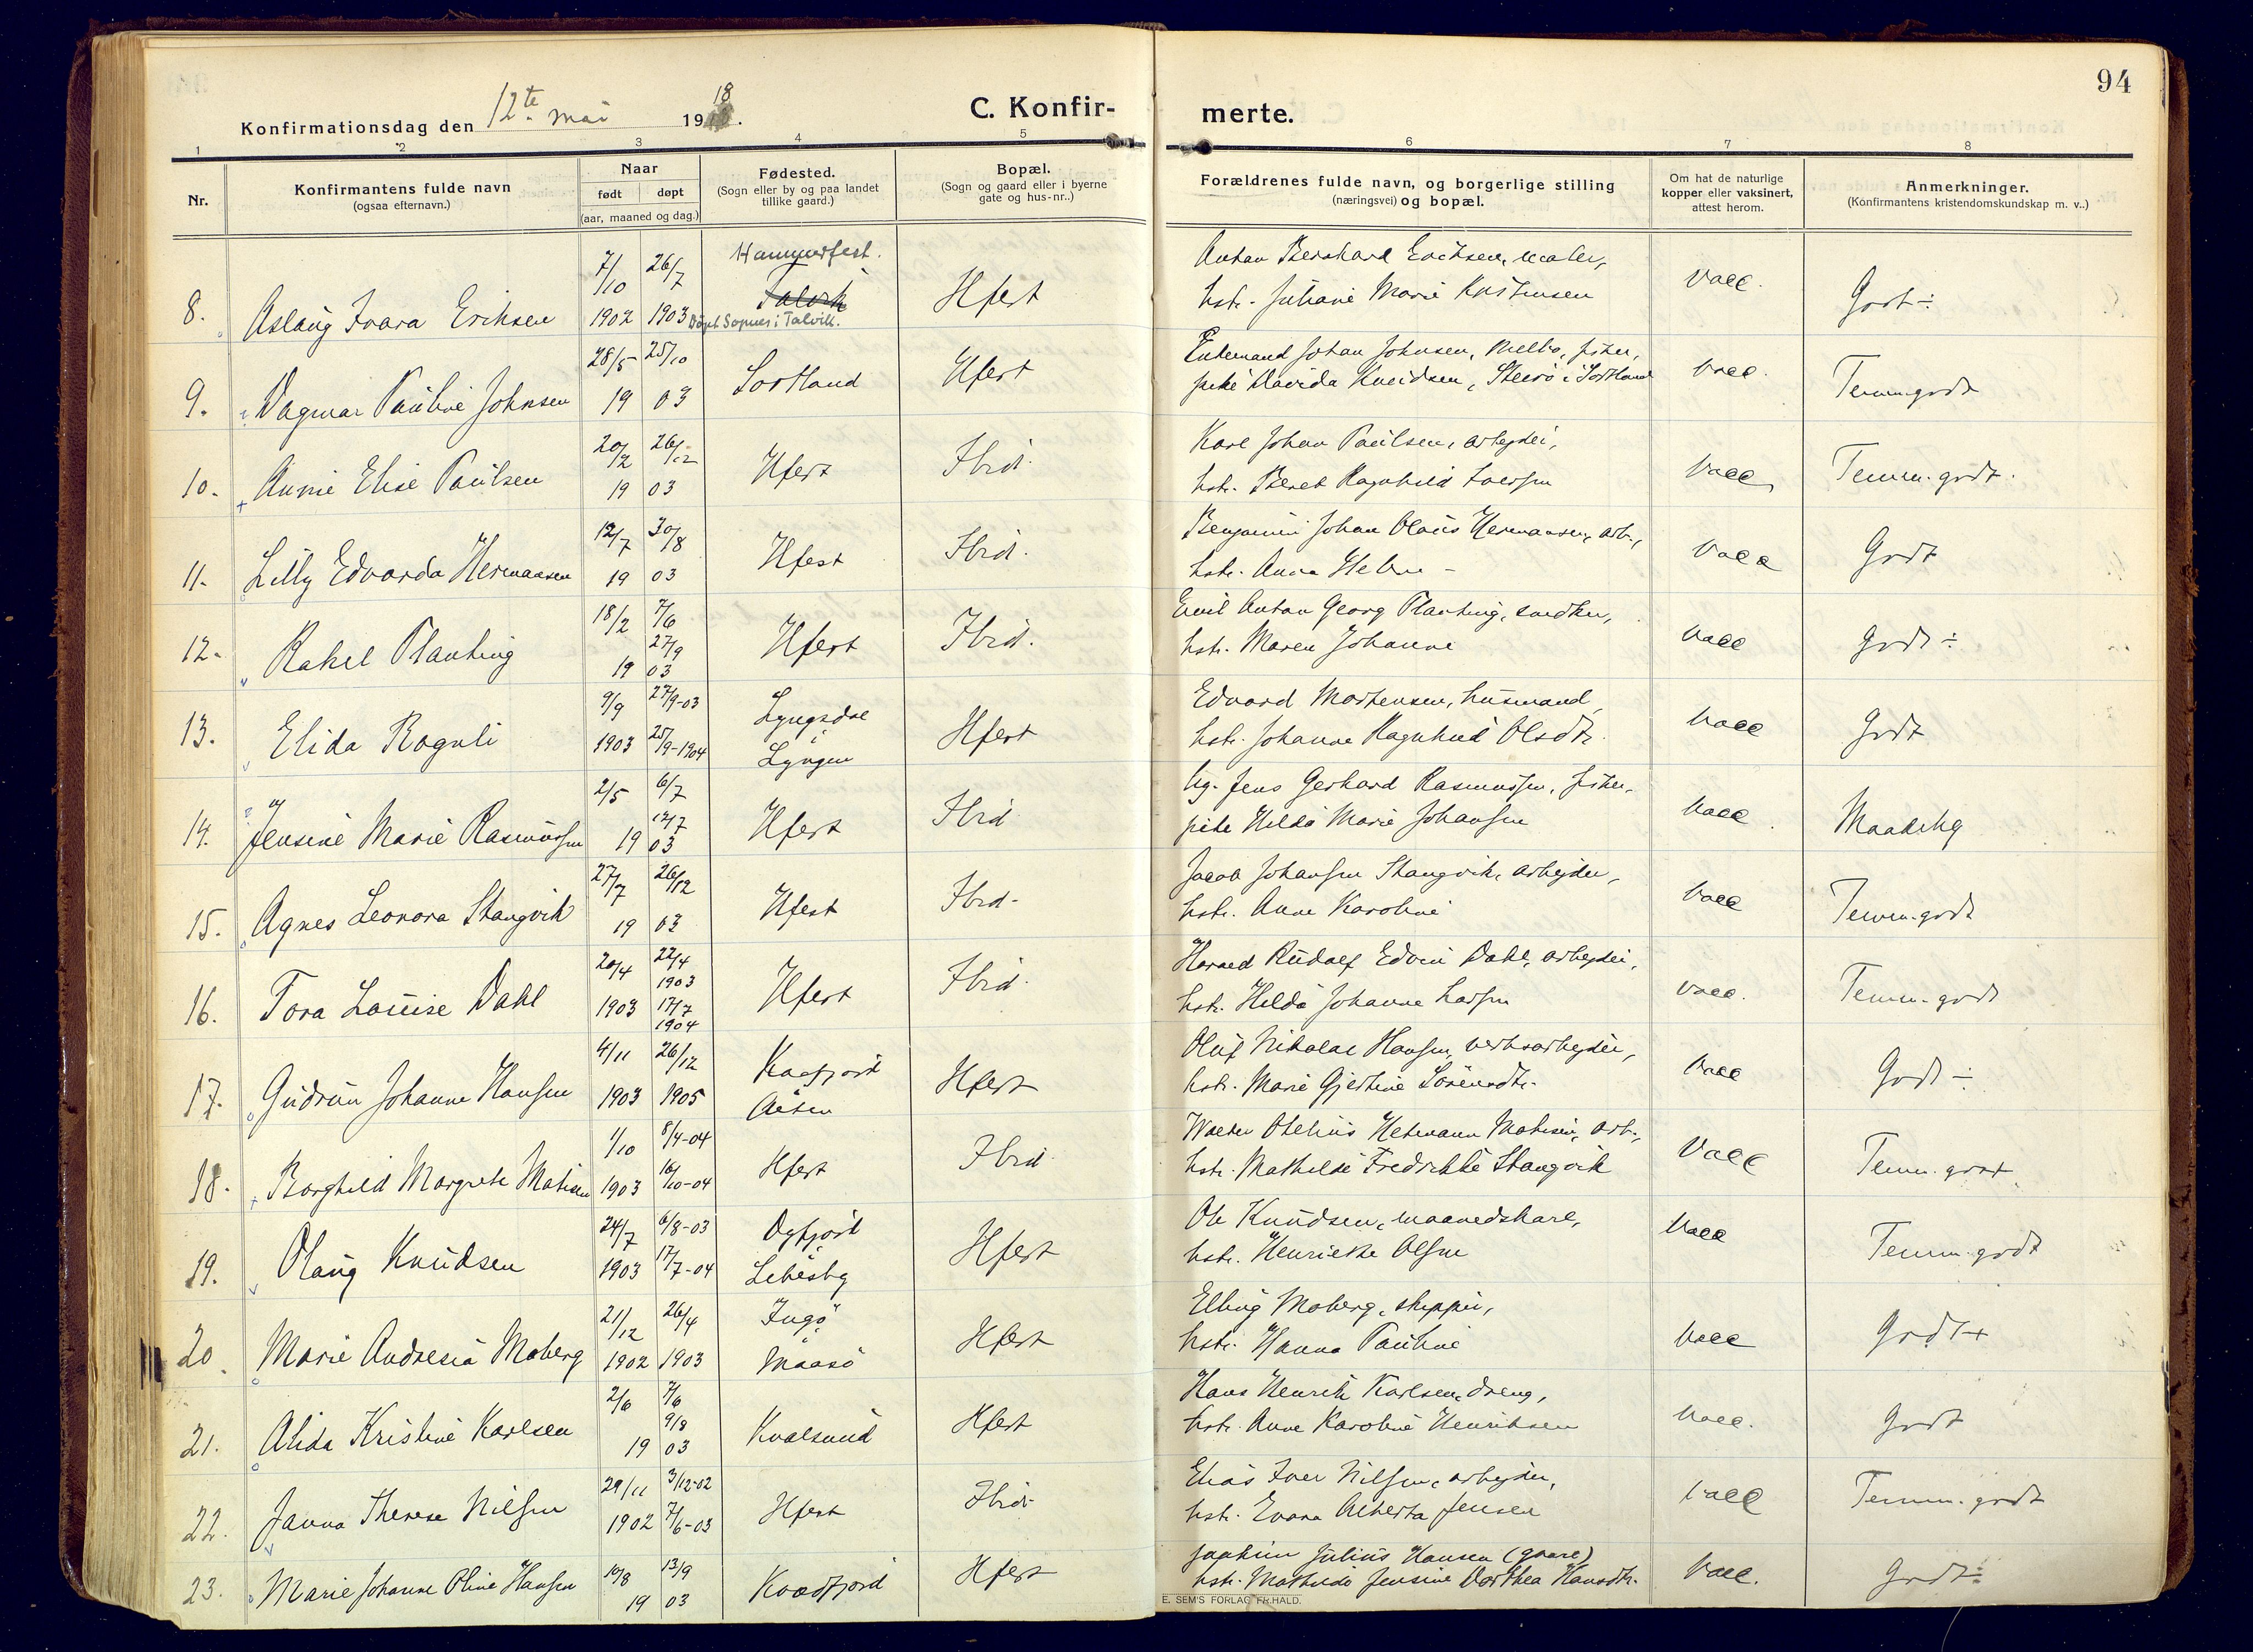 94
Konfirmationsdag den 12te mai 1918.
C. Konfirmerte.
1 2 3 4 5 6 7 8
Nr.
Konfirmantens fulde navn
(ogsaa efternavn.)
Naar
født døpt
(aar, maaned og dag.)
Fødested.
(Sogn eller by og paa landet
tillike gaard.)
Bopæl.
(Sogn og gaard eller i byerne
gate og hus-nr..)
Forældrenes fulde navn, og borgerlige stilling
(næringsvei) og bopæl.
Om hat de naturlige
kopper eller vaksinert,
attest herom.
Anmerkninger.
(Konfirmantens kristendomskundskap m. v..)
8. Aslaug Ivara Eriksen 7/10 1902 26/7 1903 Hammerfest. Talvik Døpt Sopnes i Talvik. Hfest
Anton Bernhard Eriksen, maler,
hstr. Juliane Marie Kristensen
Vacc. Godt ÷
9. Dagmar Pauline Johnsen 28/5 25/10 19 03 Sortland Hfest
Johan Johnsen, Melbo, fisker,
pike Davida Knudsen, i Sortland
Vacc. Temm. godt
10. Annie Elise Paulsen 20/2 26/12 19 03 Hfest Ibid.
Karl Johan Paulsen, arbeyder,
hstr. Beret Ragnhild Iversen
Vacc. Temm. godt.
11. Lilly Edvarda Hermansen 12/7 30/8 19 03 Hfest Ibid.
Benjamin Johan Olaus Hermansen, arb.,
hstr. Anna Helene -
Vacc Godt
12. Rakel Planting 18/2 7/6 27/9 19 03 Hfest Ibid.
Emil Anton Georg Planting, snedker,
hstr. Maren Johanne
Vacc Godt ÷
13. Elida Rognli 9/9 1903 27/9-03 25/9-1904 Lyngsdal i Lyngen Hfest
Edvard Mortensen, husmand,
hstr. Johanne Ragnhild Olsdtr.
Vacc Godt
14. uj Jensine Marie Rasmussen 2/5 6/7 12/7 19 03 Hfest Ibid
Ug. Jens Gerhard Rasmussen, fisker,
pike Hilda Marie Johansen
Vacc. Maadelig
15. Agnes Leonora Stangvik 27/7 26/12 19 03 Hfest Ibid-
Jacob Johansen Stangvik, arbeyder,
hstr. Anne Karoline
Vacc Temm. godt
16. Tora Louise Dahl 20/4 1903 22/4 1903 17/7 1904 Hfest Ibid.
Harald Rudolf Edvin Dahl, arbeyder,
hstr. Hilda Johanne Larsen
Vacc. Temm. godt
17. Gudrun Johanne Hansen 4/11 1903 26/12 1905 Kaafjord Alten Hfest
Oluf Nikolai Hansen, verksarbeyder,
hstr. Marie Gjertine Sørensdtr.
Vacc Godt ÷
18. Borghild Margrete Matisen 1/10 1903 8/4-04 16/10-04 Hfest Ibid.
Walter Otelius Hermann Matisen, arb.,
hstr. Mathilde Fredrikke Stangvik
Vacc Temm. godt
19. Olaug Knudsen 24/7 1903 6/8-03 17/7-04 i Lebesby Hfest
Ole Knudsen, maanedskarl,
hstr. Henrikke Olsen
Vacc Temm. godt
20. Marie Andresia Moberg 21/12 1902 26/4 1903 Ingø i Maasø Hfest
Elling Moberg, skipper,
hstr. Hanna Pauline
Vacc Godt +
21. Alida Kristine Karlsen 2/6 7/6 9/8 19 03 Kvalsund Hfest
Hans Henrik Karlsen, dreng,
hstr. Anne Karoline Henriksen
Vacc. Godt
22. Janna Therese Nilsen 29/11 1902 3/12-02 7/6-03 Hfest Ibid
Elias Iver Nilsen, arbeyder,
hstr. Evara Alberta Jensen
Vacc Temm. godt
23. Marie Johanne Oline Hansen 10/8 13/9 19 03 Kvædfjord Hfest
Joakim Julius Hansen (gaard)
hstr. Mathilde Jensine Dorthea Hansdtr.
Vacc. Godt ÷
E. SEM'S FORLAG FR.HALD.